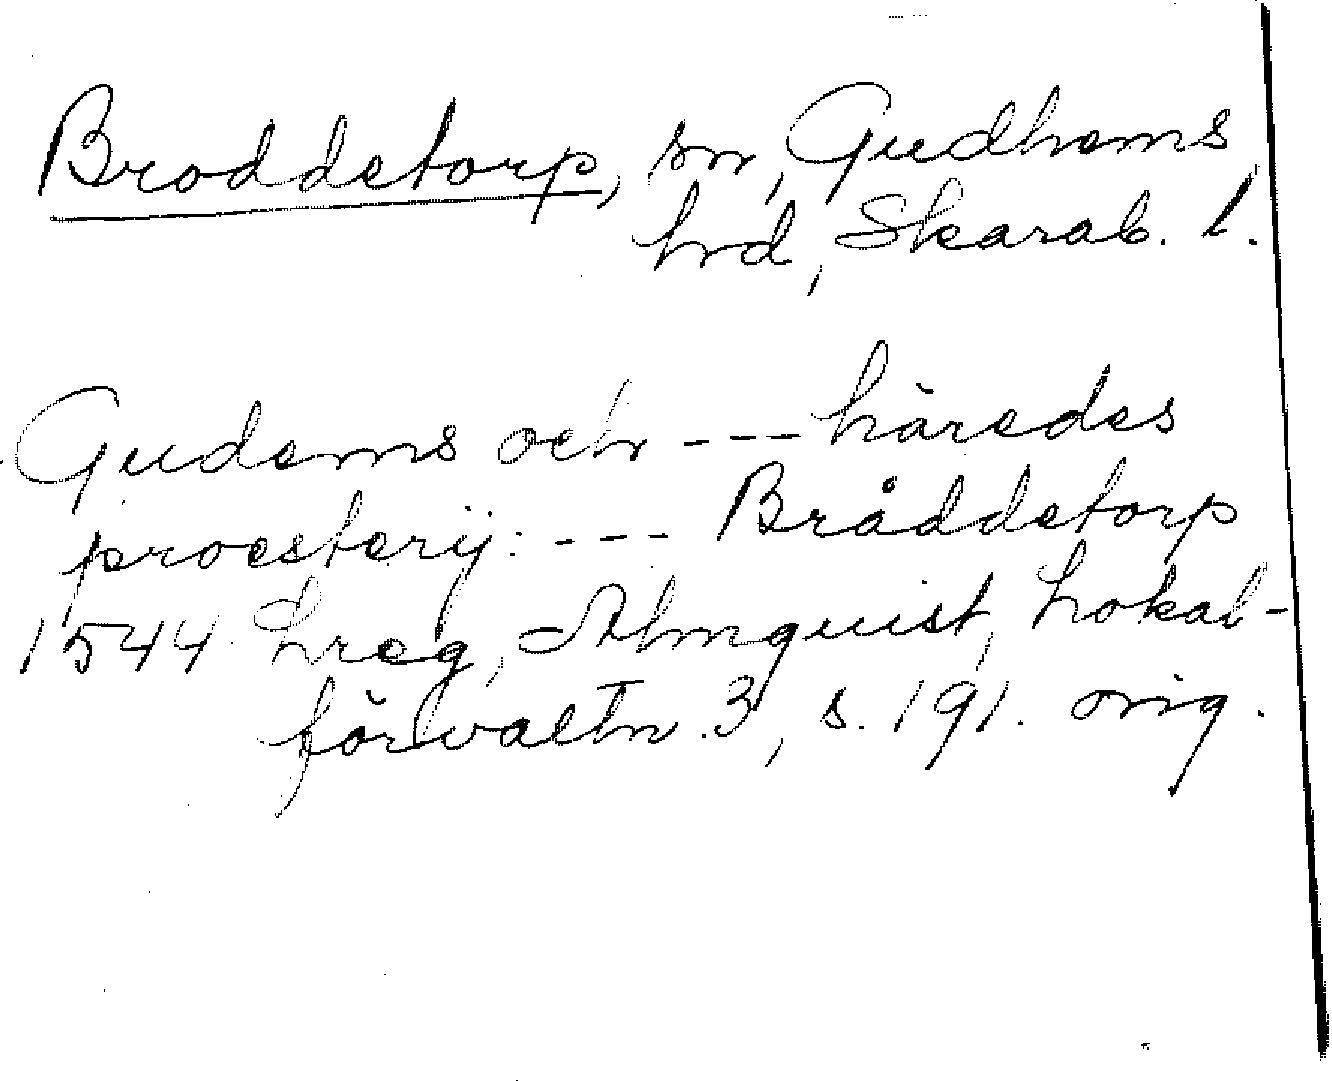 Broddetorp, sn, Gudhems
hrd, Skarab. l.
Gudems och --- häredes
proesterij: --- Bråddetorp
1544 Lreg, Almquist, Lokal-
förvaltn. 3, s. 191. orig.